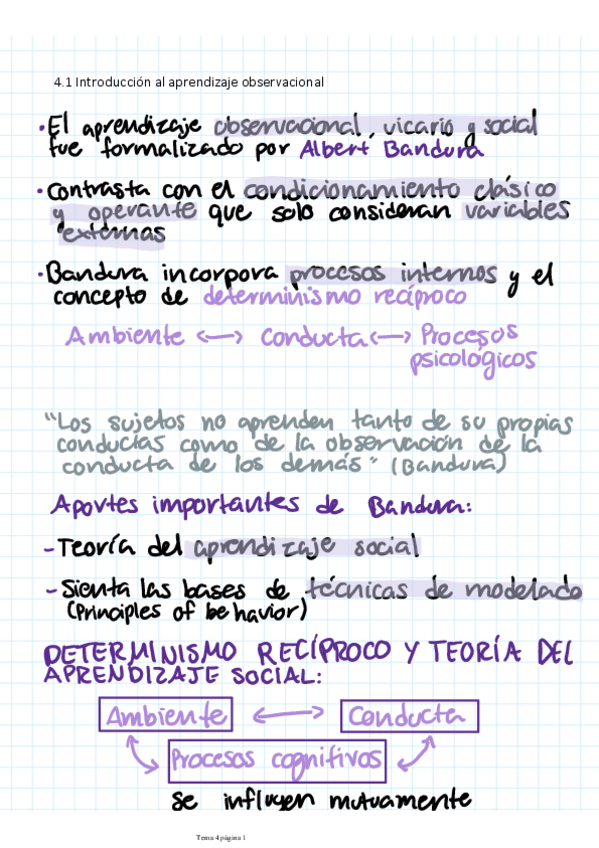 4.1 Introducción al aprendizaje observacional
• El aprendizaje observacional, vicario y social
fue formalizado por Albert Bandura
• Contrasta con el condicionamiento clásico
y operante que solo consideran variables
externas
• Bandura incorpora procesos internos y el
concepto de determinismo recíproco
Ambiente <—> Conducta <—> Procesos
psicológicos
"Los sujetos no aprenden tanto de su propias
conductas como de la observación de la
conducta de los demás" (Bandura)
Aportes importantes de Bandura:
- Teoría del aprendizaje social
- Sienta las bases de técnicas de modelado
(Principles of behavior)
DETERMINISMO RECÍPROCO Y TEORÍA DEL
APRENDIZAJE SOCIAL:
Ambiente <—> Conducta
Procesos cognitivos
se influyen mutuamente
Tema 4 página 1